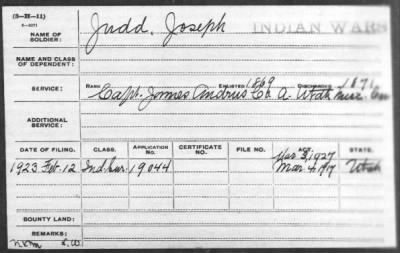 (3-III-11)
6-4071
NAME OF SOLDIER: Judd, Joseph INDIAN WARS
NAME AND CLASS OF DEPENDENT:
RANK ENLISTED 1869 DISCHARGED 1870
SERVICE: Capt. James Andrus Co. A. Utah
ADDITIONAL SERVICE:
DATE OF FILING. CLASS. APPLICATION NO. CERTIFICATE NO. FILE NO. ACT. STATE.
Mar 3, 1927
1923 Feb. 12 Ind. Sur. 19044 Mar. 4, 1917 Utah
BOUNTY LAND:
REMARKS: